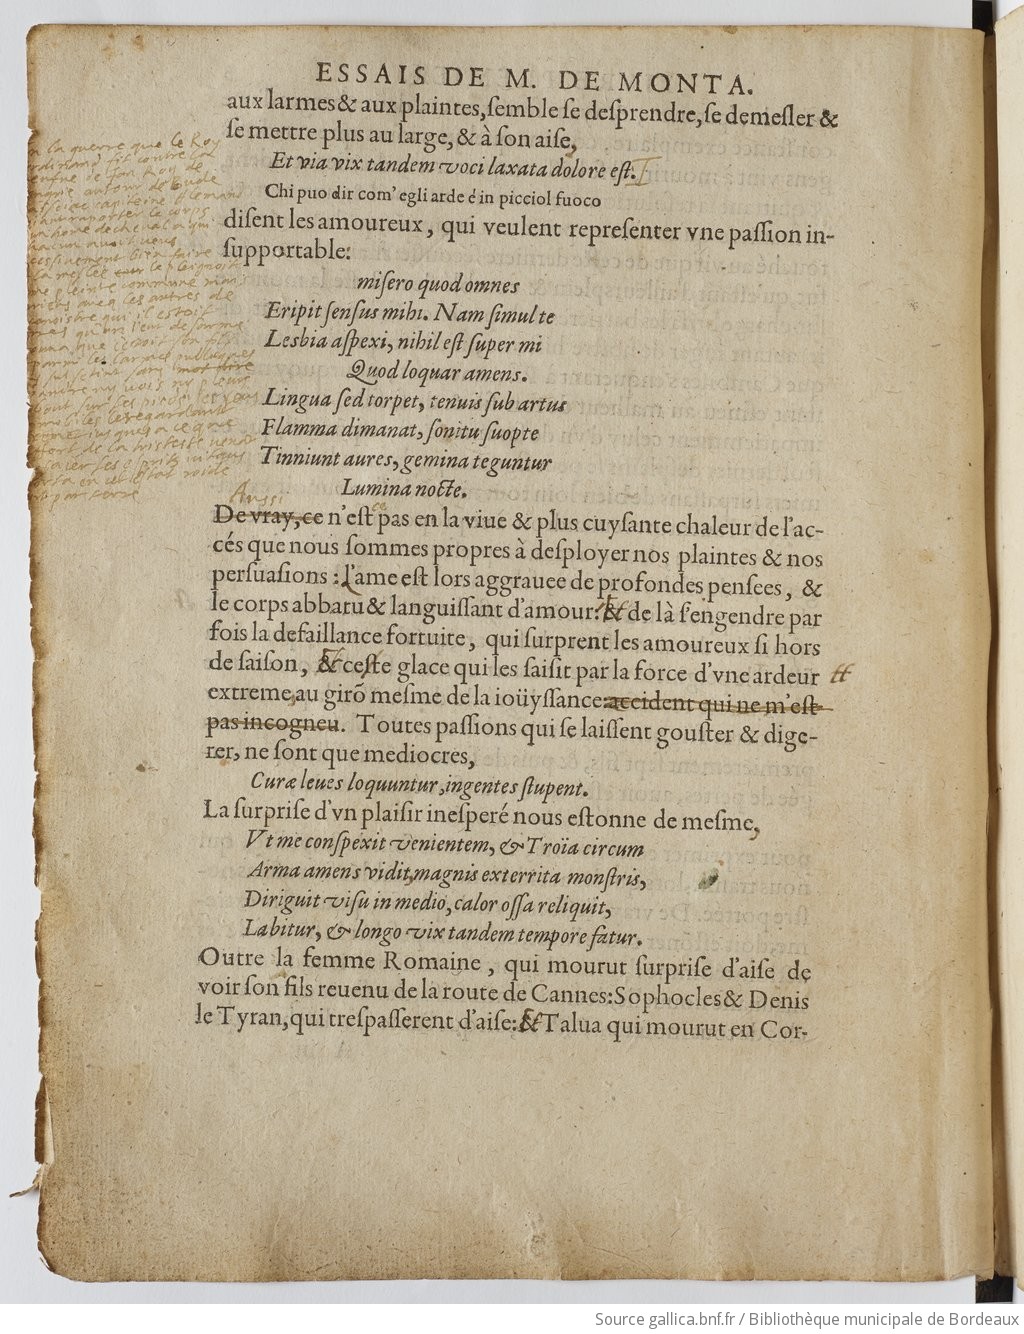 ESSAIS DE M. DE MONTA.
aux larmes & aux plaintes, semble se desprendre, se demesler &
se mettre plus au large, & à son aise,
Et via vix tandem voci laxata dolore est.
Chi puo dir com' egli arde è in picciol fuoco
disent les amoureux, qui veulent representer vne passion in-
supportable:
misero quod omnes
Eripit sensus mihi. Nam simul te
Lesbia aspexi, nihil est super mi
Quod loquar amens.
Lingua sed torpet, tenuis sub artus
Flamma dimanat, sonitu suopte
Tinniunt aures, gemina teguntur
Lumina nocte.
Aussi
De vray, ce n'est ce pas en la viue & plus cuysante chaleur de l'ac-
cés que nous sommes propres à desployer nos plaintes & nos
persuasions : l'ame est lors aggrauee de profondes pensees, &
le corps abbatu & languissant d'amour: & de là s'engendre par
fois la defaillance fortuite, qui surprent les amoureux si hors
de saison, & ceste glace qui les saisit par la force d'vne ardeur
extreme, au girõ mesme de la ioüyssance: accident qui ne m'est
pas incogneu. Toutes passions qui se laissent gouster & dige-
rer, ne sont que mediocres,
Curæ leues loquuntur, ingentes stupent.
La surprise d'vn plaisir inesperé nous estonne de mesme,
Vt me conspexit venientem, & Troïa circum
Arma amens vidit, magnis exterrita monstris,
Diriguit visu in medio, calor ossa reliquit,
Labitur, & longo vix tandem tempore fatur.
Outre la femme Romaine, qui mourut surprise d'aise de
voir son fils reuenu de la route de Cannes: Sophocles & Denis
le Tyran, qui trespasserent d'aise: & Talua qui mourut en Cor-
la guerre que le Roy
contre la
de Jan Roy de
le corps
home de cheval
bien faire
commune
aveq les autres de
qu'il estoit
son fils
les larmes publiques
sans
ny vois ny pleurs
sur ses pieds
le regardant
jusques a ce que
de la tristesse
en cet estat roide
par terre
Source gallica.bnf.fr / Bibliothèque municipale de Bordeaux